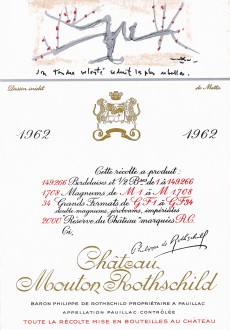 son tendre velouté séduit les plus rebelles.
Dessin inédit de Matta
1962 1962
Cette récolte a produit:
149266 Bordelaises et ½ Bses de 1 à 149266
1708 Magnums de M 1 à M 1708
34 Grands Formats de GF1 à GF34
double magnums, jéroboams, impériales
2000 "Réserve du Château" marqués R.C.
Ci,
Philippe de Rothschild
Château
Mouton Rothschild
BARON PHILIPPE DE ROTHSCHILD PROPRIÉTAIRE A PAUILLAC
APPELLATION PAUILLAC CONTRÔLÉE
TOUTE LA RÉCOLTE MISE EN BOUTEILLES AU CHÂTEAU